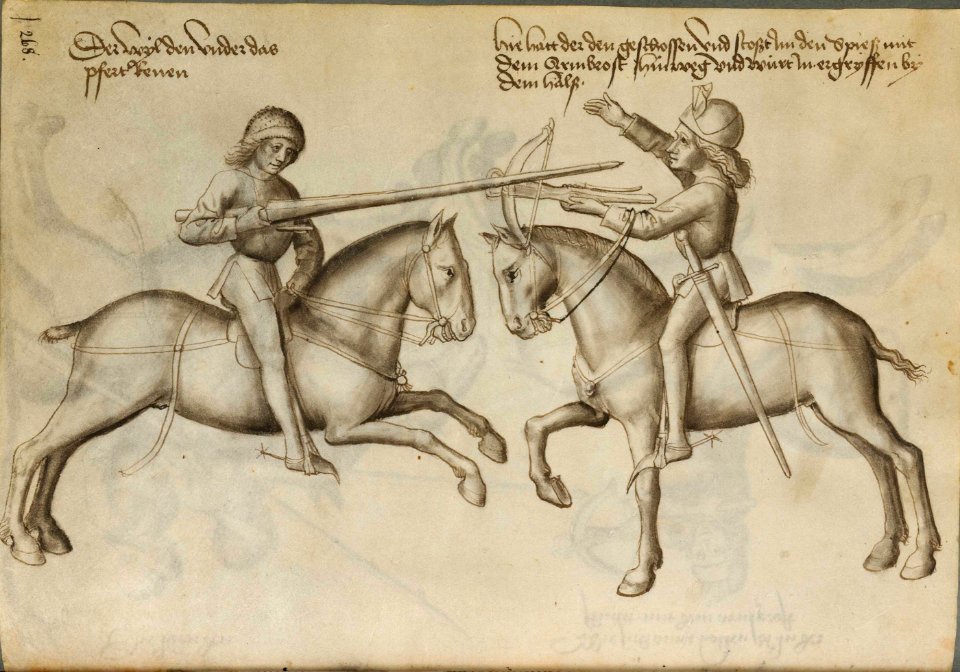 268.
Der wyl den vnder das
pfert Renen
hie hatt der den geschossen vnd stoszt Im den spiesz mit
dem Armbrost hinweg vnd würt in ergryffen by
dem halsz.